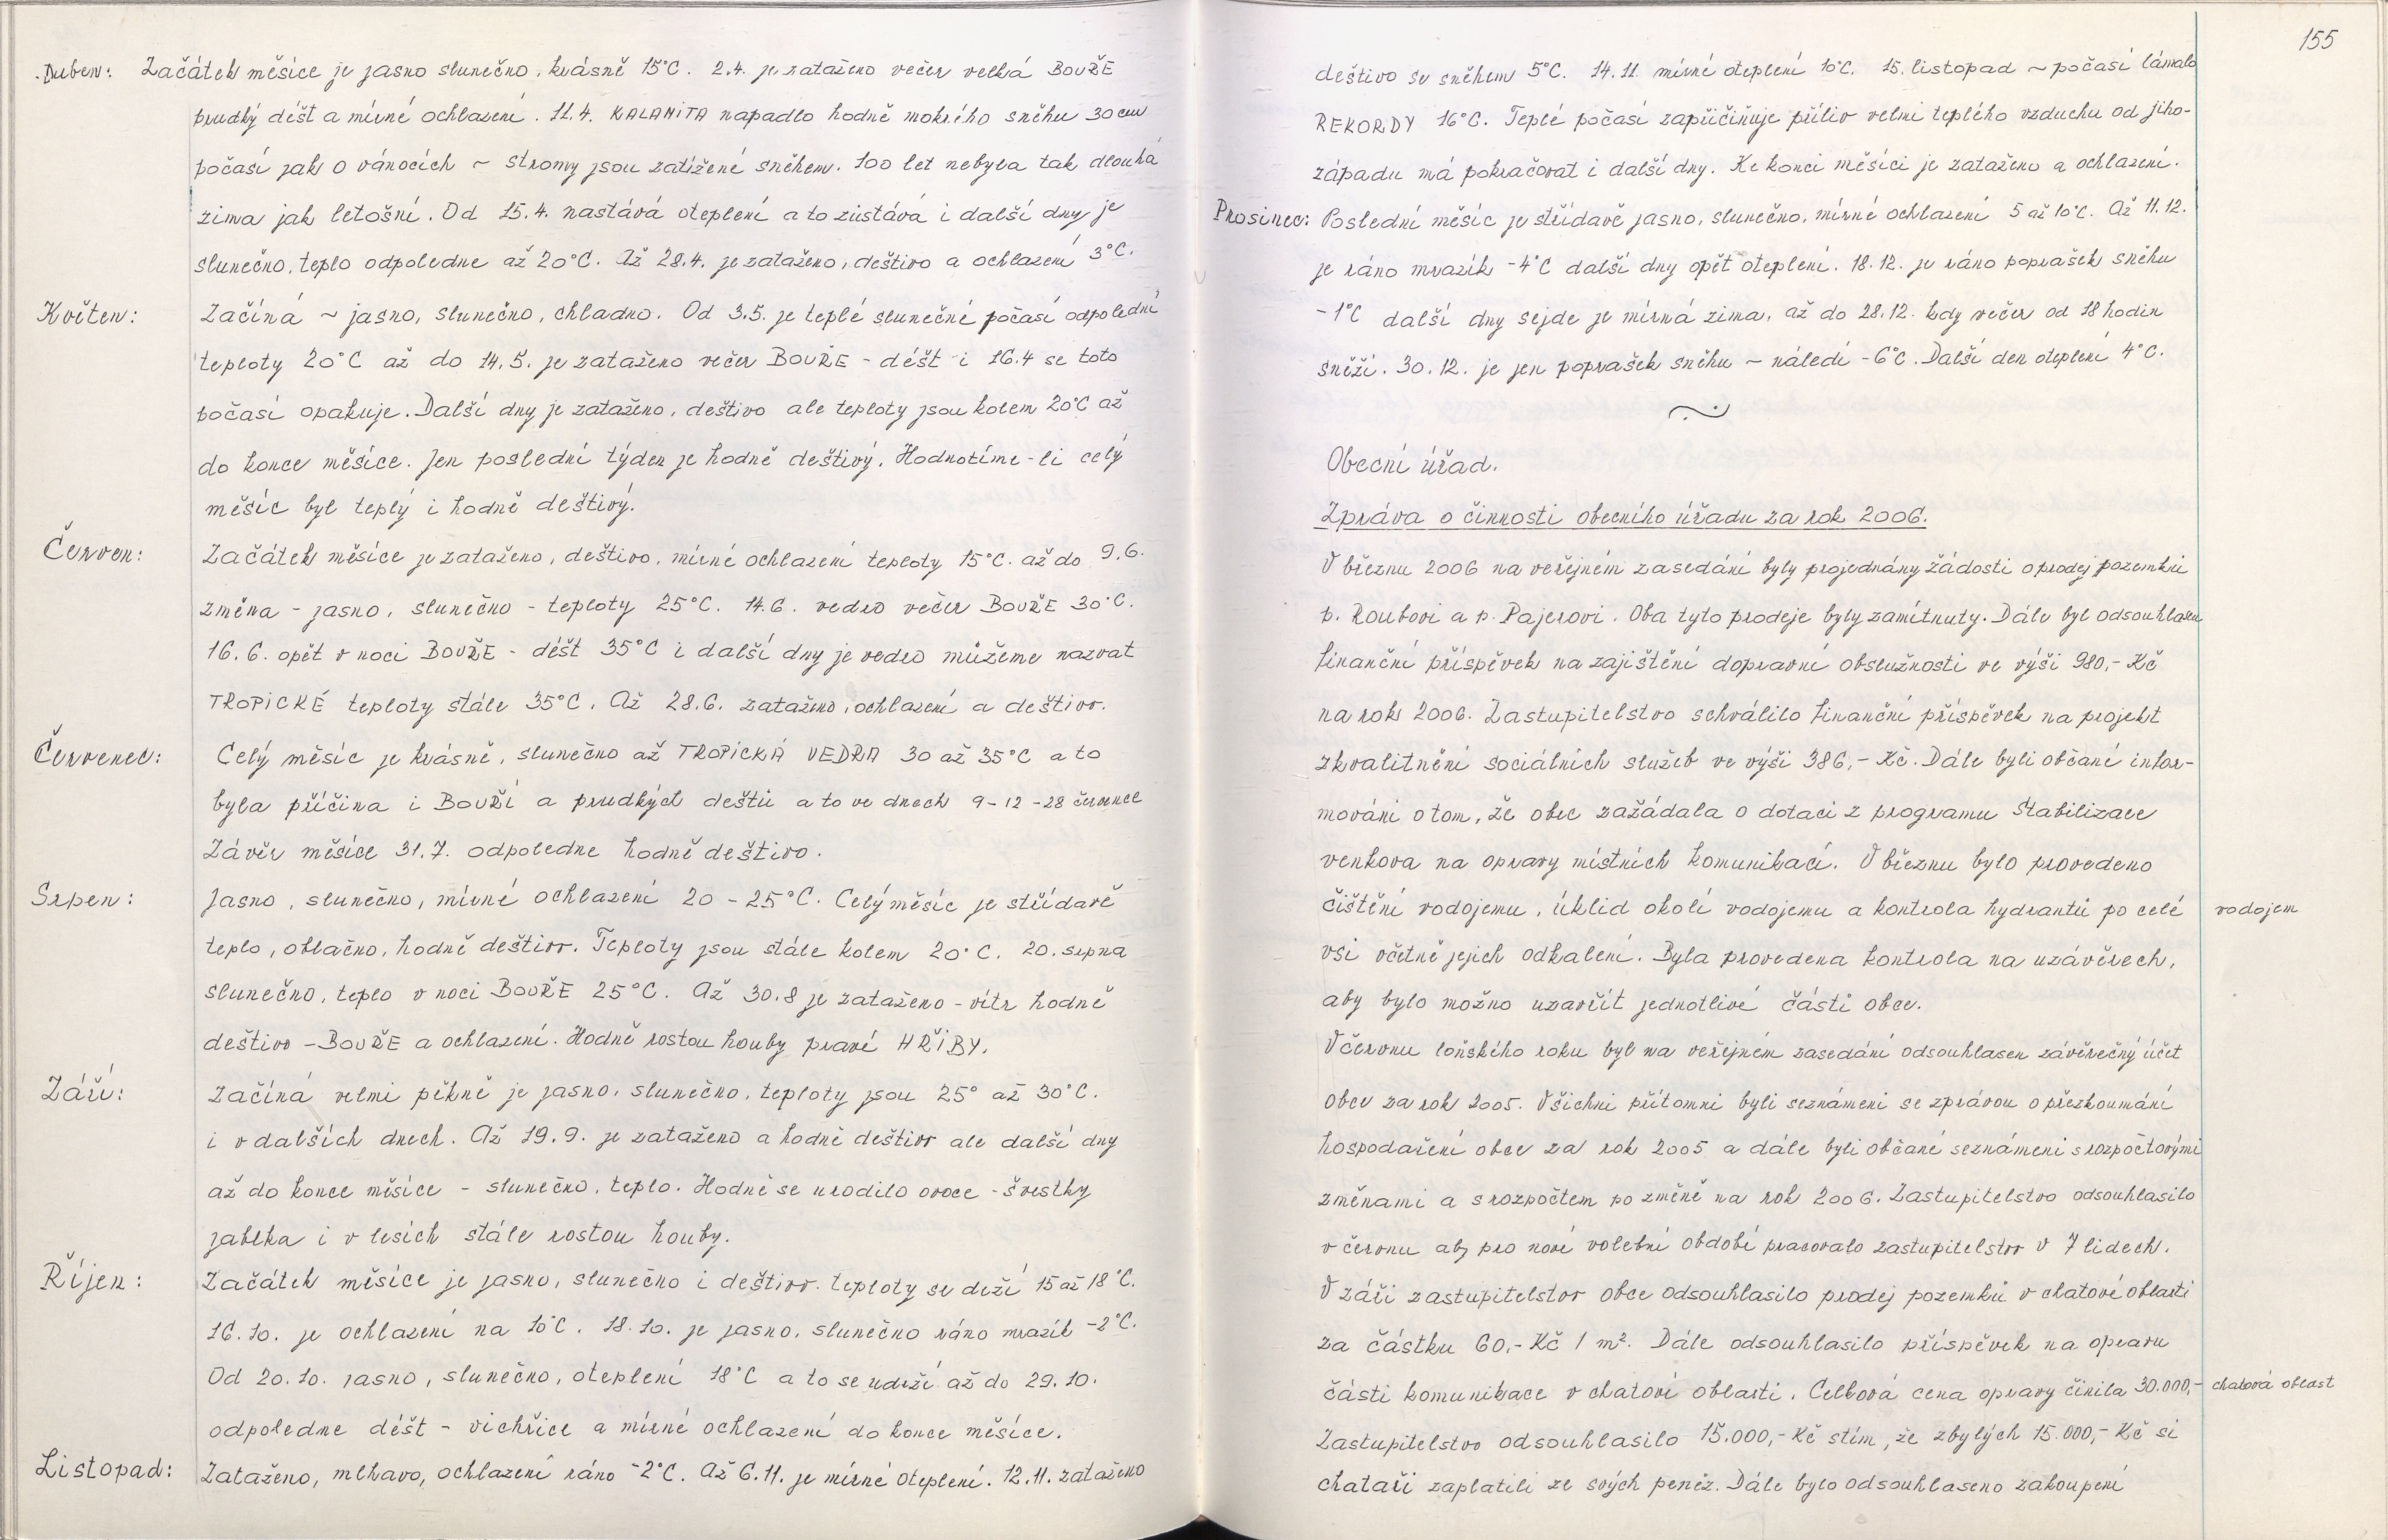 Duben: Začátek měsíce je jasno slunečno, krásně 15°C. 2.4. je zataženo večer velká BOUŘE
prudký déšt a mírné ochlazení. 11.4. KALAMiTA napadlo hodně mokrého sněhu 30 cm
počasí jak o vánocích ~ stromy jsou zatížené sněhem. 100 let nebyla tak dlouhá
zima jak letošní. Od 15.4. nastává oteplení a to zůstává i další dny je
slunečno, teplo odpoledne až 20°C. Až 28.4. je zataženo, deštivo a ochlazení 3°C.
Květen: Začíná ~ jasno, slunečno, chladno. Od 3.5. je teplé slunečné počasí odpolední
teploty 20°C až do 14.5. je zataženo večer BOUŘE - déšt i 16.4 se toto
počasí opakuje. Další dny je zataženo, deštivo ale teploty jsou kolem 20°C až
do konce měsíce. Jen poslední týden je hodně deštivý. Hodnotíme-li celý
měsíc byl teplý i hodně deštivý.
Červen: Začátek měsíce je zataženo, deštivo, mírné ochlazení teploty 15°C. až do 9.6.
změna - jasno, slunečno - teploty 25°C. 14.6. vedro večer BOUŘE 30°C.
16.6. opět v noci BOUŘE - déšt 35°C i další dny je vedro můžeme nazvat
TROPiCKÉ teploty stále 35°C. Až 28.6. zataženo, ochlazení a deštivo.
Červenec: Celý měsíc je krásně, slunečno až TROPiCKÁ VEDRA 30 až 35°C a to
byla příčina i BOUŘÍ a prudkých deštů a to ve dnech 9-12-28 července
Závěr měsíce 31.7. odpoledne hodně deštivo.
Srpen: Jasno, slunečno, mírné ochlazení 20 - 25°C. Celý měsíc je střídavě
teplo, oblačno, hodně deštivo. Teploty jsou stále kolem 20°C. 20. srpna
slunečno, teplo v noci BOUŘE 25°C. Až 30.8 je zataženo - vítr hodně
deštivo - BOUŘE a ochlazení. Hodně rostou houby pravé HŘiBY.
Září: Začíná velmi pěkně je jasno, slunečno, teploty jsou 25° až 30°C.
i v dalších dnech. Až 19.9. je zataženo a hodně deštivo ale další dny
až do konce měsíce - slunečno, teplo. Hodně se urodilo ovoce - švestky
jablka i v lesích stále rostou houby.
Říjen: Začátek měsíce je jasno, slunečno i deštivo. teploty se drží 15 až 18°C.
16.10. je ochlazení na 10°C. 18.10. je jasno, slunečno ráno mrazík -2°C.
Od 20.10. jasno, slunečno, oteplení 18°C a to se udrží až do 29.10.
odpoledne déšt - vichřice a mírné ochlazení do konce měsíce.
Listopad: Zataženo, mlhavo, ochlazení ráno -2°C. Až 6.11. je mírné oteplení. 12.11. zataženo
155
deštivo se sněhem 5°C. 14.11. mírné oteplení 10°C. 15. listopad ~ počasí lámalo
REKORDY 16°C. Teplé počasí zapřičiňuje příliv velmi teplého vzduchu od jiho-
západu má pokračovat i další dny. Ke konci měsíci je zataženo a ochlazení.
Prosinec: Poslední měsíc je střídavě jasno, slunečno, mírné ochlazení 5 až 10°C. Až 11.12.
je ráno mrazík -4°C další dny opět oteplení. 18.12. je ráno poprašek sněhu
-1°C další dny sejde je mírná zima, až do 28.12. kdy večer od 18 hodin
sněží. 30.12. je jen poprašek sněhu ~ náledí -6°C. Další den oteplení 4°C.
Obecní úřad.
Zpráva o činnosti obecního úřadu za rok 2006.
V březnu 2006 na veřejném zasedání byly projednány žádosti o prodej pozemků
p. Roubovi a p. Pajerovi. Oba tyto prodeje byly zamítnuty. Dále byl odsouhlasen
finanční příspěvek na zajištění dopravní obslužnosti ve výši 980,- Kč
na rok 2006. Zastupitelstvo schválilo finanční příspěvek na projekt
zkvalitnění sociálních služeb ve výši 386,- Kč. Dále byli občané infor-
mováni o tom, že obec zažádala o dotaci z programu Stabilizace
venkova na opravy místních komunikací. V březnu bylo provedeno
čištění vodojemu, úklid okolí vodojemu a kontrola hydrantů po celé vodojem
vsi včetně jejich odkalení. Byla provedena kontrola na uzávěrech,
aby bylo možno uzavřít jednotlivé části obce.
V červnu loňského roku byl na veřejném zasedání odsouhlasen závěrečný účet
obce za rok 2005. Všichni přítomni byli seznámeni se zprávou o přezkoumání
hospodaření obce za rok 2005 a dále byli občané seznámeni s rozpočtovými
změnami a s rozpočtem po změně na rok 2006. Zastupitelstvo odsouhlasilo
v červnu aby pro nové volební období pracovalo zastupitelstvo v 7 lidech.
V září zastupitelstvo obce odsouhlasilo prodej pozemků v chatové oblasti
za částku 60,- Kč 1 m². Dále odsouhlasilo příspěvek na opravu
části komunikace v chatové oblasti. Celková cena opravy činila 30.000,- chatová oblast
Zastupitelstvo odsouhlasilo 15.000,- Kč stím, že zbylých 15.000,- Kč si
chataři zaplatili ze svých peněz. Dále bylo odsouhlaseno zakoupení